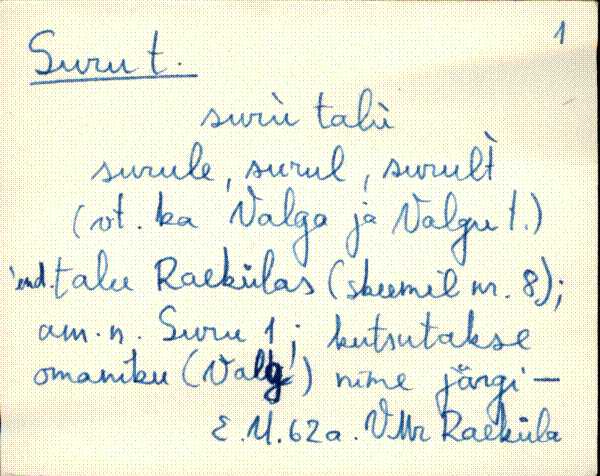 1
Suru t.
surù talù
surule, surul, surult̀
(vt. ka Valga ja Valgu t.)
end. talu Raeküla s (skeemil nr. 8);
am. n. Suru 1; kutsutakse
omaniku (Valg!) nime järgi —
E. M. 62a. VMr Raeküla